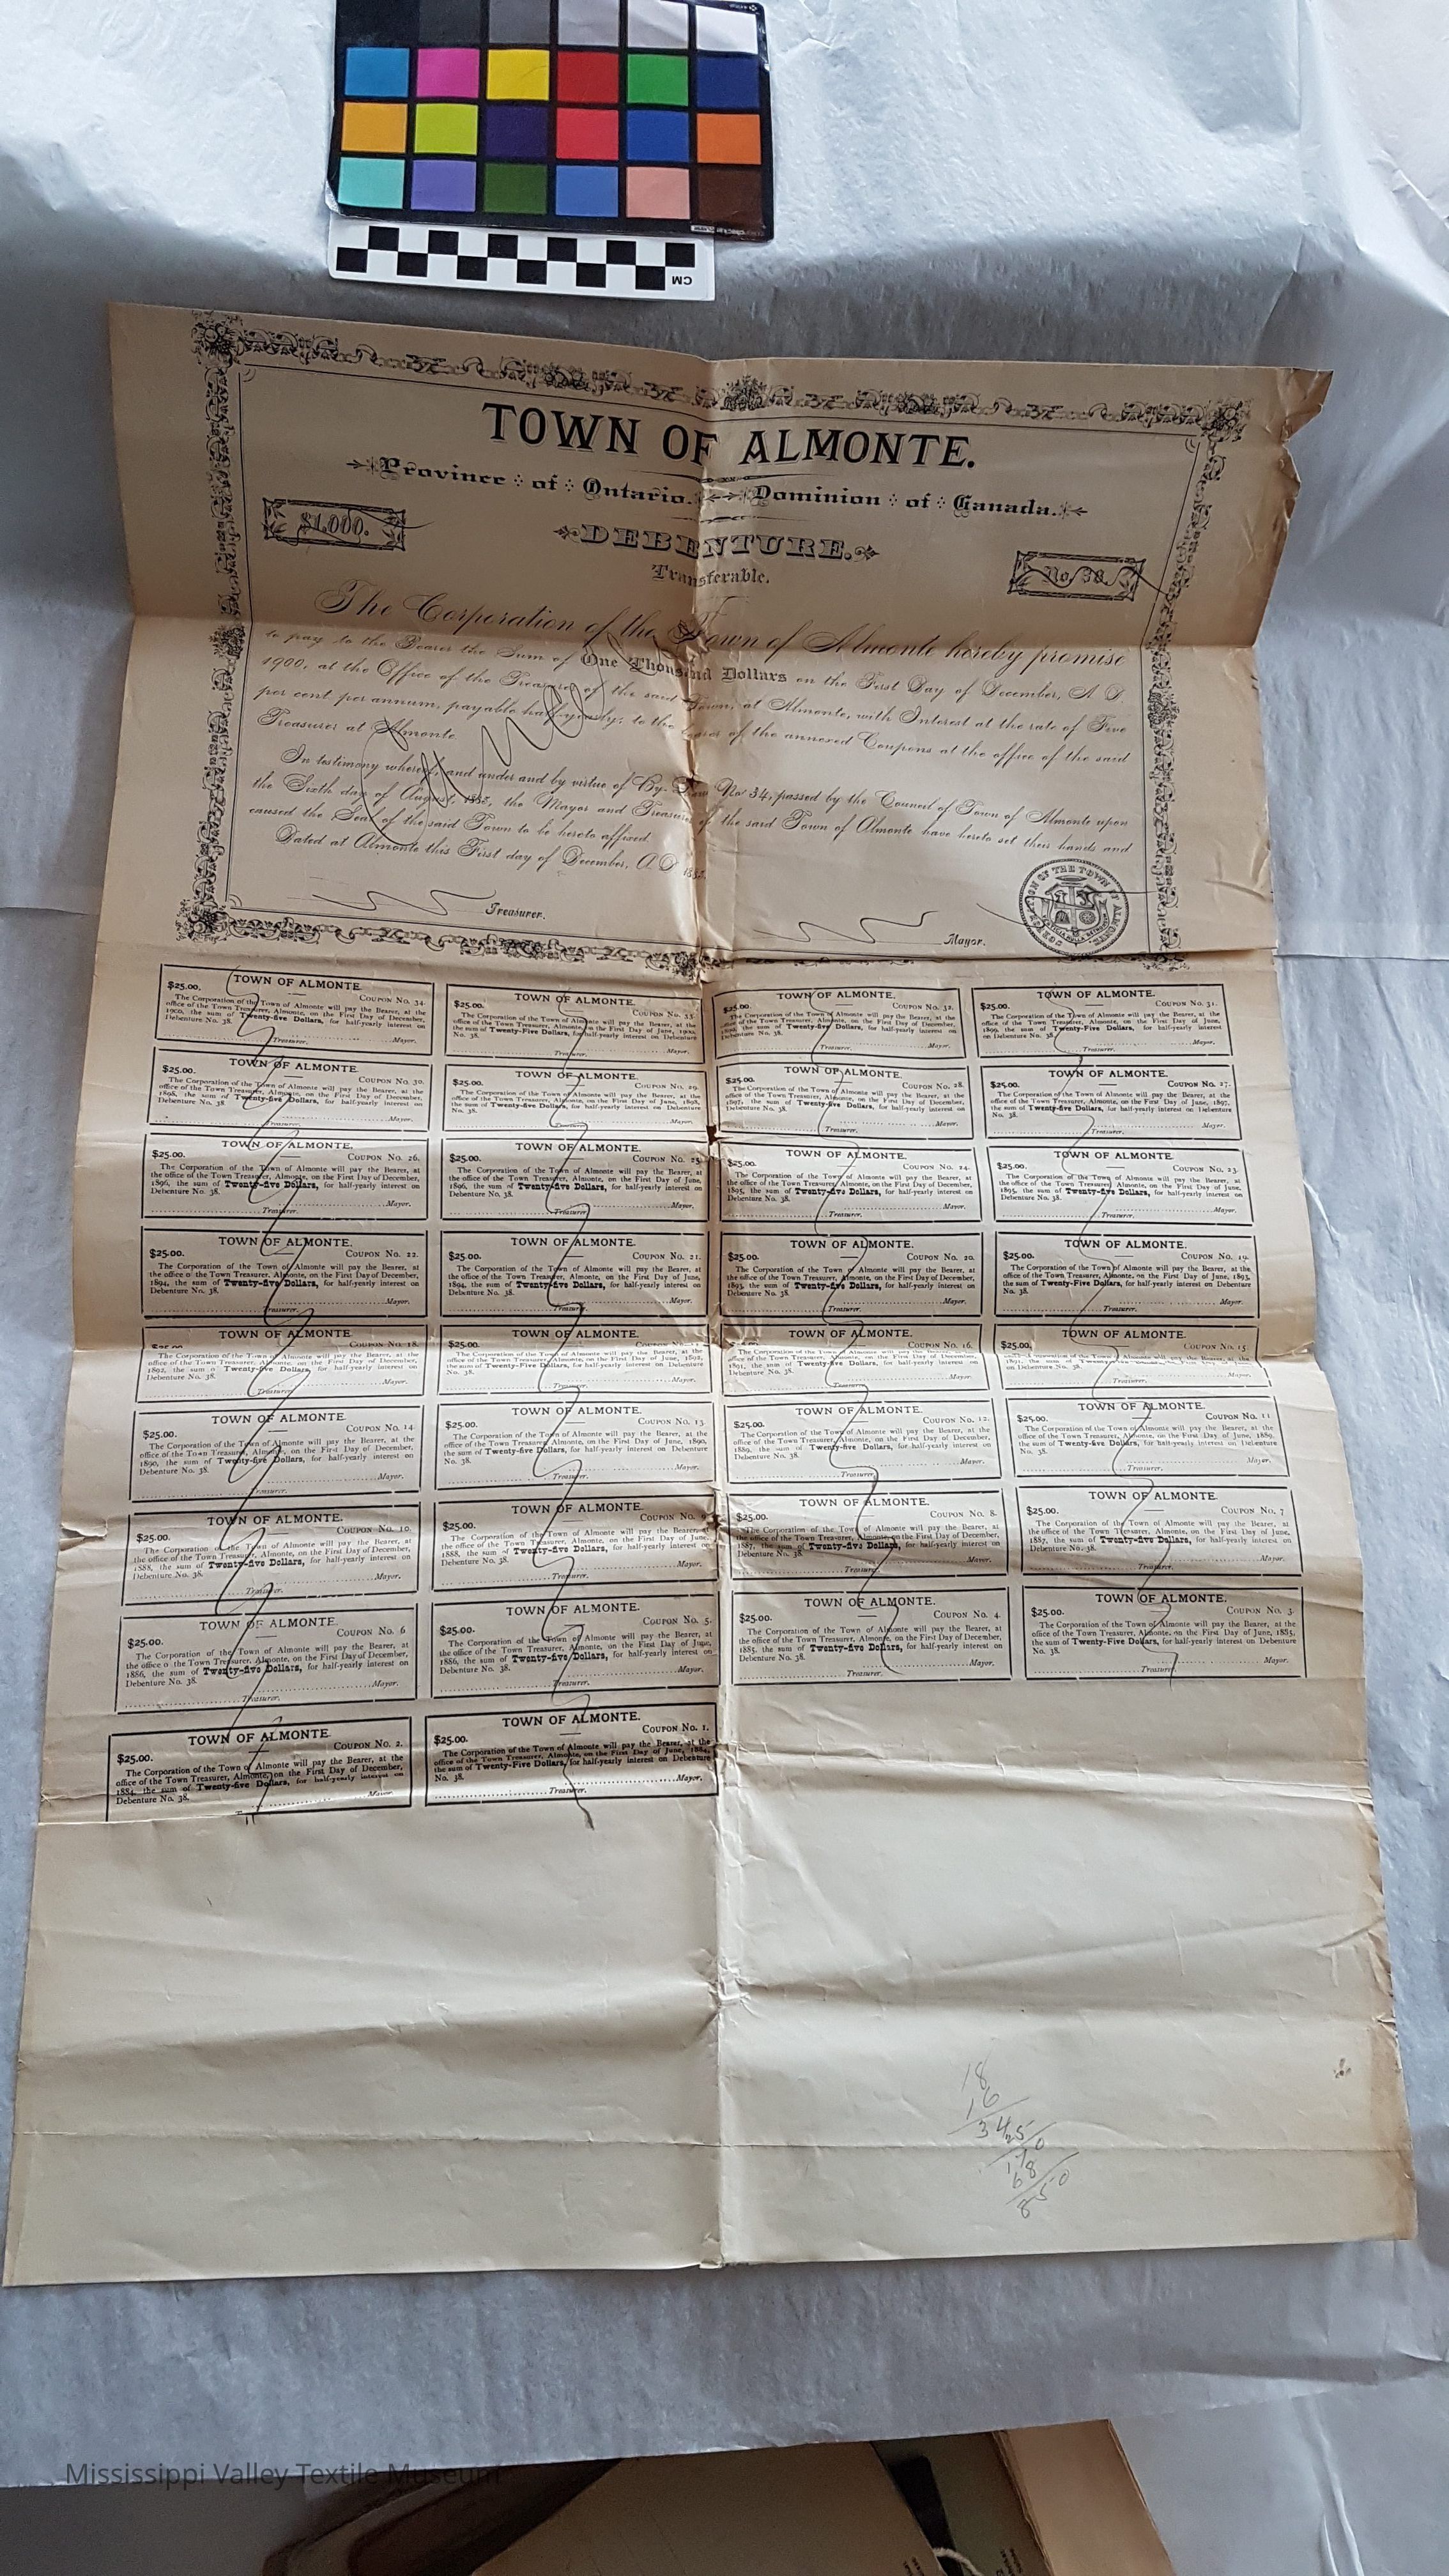 CM
TOWN OF ALMONTE.
Province of Ontario. Dominion of Canada.
$1.000.
DEBENTURE.
No. 38.
Transferable.
The Corporation of the Town of Almonte hereby promise
to pay to the Bearer the Sum of One Thousand Dollars on the First Day of December, A. D.
1900, at the Office of the Treasurer of the said Town, at Almonte, with Interest at the rate of Five
per cent. per annum, payable half-yearly, to the bearer of the annexed Coupons at the office of the said
Treasurer at Almonte.
In testimony whereof, and under and by virtue of By-Law No. 34, passed by the Council of Town of Almonte upon
the Sixth day of August, the Mayor and Treasurer of the said Town of Almonte have hereto set their hands and
caused the Seal of the said Town to be hereto affixed.
Dated at Almonte this First day of December, A. D.
Cancelled
Treasurer.
Mayor.
CORPORATION OF THE TOWN OF ALMONTE
TOWN OF ALMONTE.
$25.00. COUPON No. 34.
The Corporation of the Town of Almonte will pay the Bearer, at the
office of the Town Treasurer, Almonte, on the First Day of December,
1900, the sum of Twenty-five Dollars, for half-yearly interest on
Debenture No. 38.
Mayor.
Treasurer.
TOWN OF ALMONTE.
$25.00. COUPON No. 33.
The Corporation of the Town of Almonte will pay the Bearer, at the
office of the Town Treasurer, Almonte, on the First Day of June, 1900,
the sum of Twenty-Five Dollars, for half-yearly interest on Debenture
No. 38.
Mayor.
Treasurer.
TOWN OF ALMONTE.
$25.00. COUPON No. 32.
The Corporation of the Town of Almonte will pay the Bearer, at the
office of the Town Treasurer, Almonte, on the First Day of December,
the sum of Twenty-five Dollars, for half-yearly interest on
Debenture No. 38.
Mayor.
Treasurer.
TOWN OF ALMONTE.
$25.00. COUPON No. 31.
The Corporation of the Town of Almonte will pay the Bearer, at the
office of the Town Treasurer, Almonte, on the First Day of June,
1899, the sum of Twenty-Five Dollars, for half-yearly interest
on Debenture No. 38.
Mayor.
Treasurer.
TOWN OF ALMONTE.
$25.00. COUPON No. 30.
The Corporation of the Town of Almonte will pay the Bearer, at the
office of the Town Treasurer, Almonte, on the First Day of December,
1898, the sum of Twenty-five Dollars, for half-yearly interest on
Debenture No. 38
Mayor.
Treasurer.
TOWN OF ALMONTE.
$25.00. COUPON No. 29.
The Corporation of the Town of Almonte will pay the Bearer, at the
office of the Town Treasurer, Almonte, on the First Day of June, 1898,
the sum of Twenty-five Dollars, for half-yearly interest on Debenture
No. 38.
Mayor.
Treasurer.
TOWN OF ALMONTE.
$25.00. COUPON No. 28.
The Corporation of the Town of Almonte will pay the Bearer, at the
office of the Town Treasurer, Almonte, on the First Day of December,
1897, the sum of Twenty-five Dollars, for half-yearly interest on
Debenture No. 38.
Mayor.
Treasurer.
TOWN OF ALMONTE.
$25.00. COUPON No. 27.
The Corporation of the Town of Almonte will pay the Bearer, at the
office of the Town Treasurer, Almonte, on the First Day of June, 1897,
the sum of Twenty-five Dollars, for half-yearly interest on Debenture
No. 38.
Mayor.
Treasurer.
TOWN OF ALMONTE.
$25.00. COUPON No. 26.
The Corporation of the Town of Almonte will pay the Bearer, at
the office of the Town Treasurer, Almonte, on the First Day of December,
1896, the sum of Twenty-five Dollars, for half-yearly interest on
Debenture No. 38.
Mayor.
Treasurer.
TOWN OF ALMONTE.
$25.00. COUPON No. 25.
The Corporation of the Town of Almonte will pay the Bearer, at
the office of the Town Treasurer, Almonte, on the First Day of June,
1896, the sum of Twenty-five Dollars, for half-yearly interest on
Debenture No. 38.
Mayor.
Treasurer.
TOWN OF ALMONTE.
$25.00. COUPON No. 24.
The Corporation of the Town of Almonte will pay the Bearer, at
the office of the Town Treasurer, Almonte, on the First Day of December,
1895, the sum of Twenty-five Dollars, for half-yearly interest on
Debenture No. 38.
Mayor.
Treasurer.
TOWN OF ALMONTE.
$25.00. COUPON No. 23.
The Corporation of the Town of Almonte will pay the Bearer, at
the office of the Town Treasurer, Almonte, on the First Day of June,
1895, the sum of Twenty-five Dollars, for half-yearly interest on
Debenture No. 38.
Mayor.
Treasurer.
TOWN OF ALMONTE.
$25.00. COUPON No. 22.
The Corporation of the Town of Almonte will pay the Bearer, at
the office o the Town Treasurer, Almonte, on the First Day of December,
1894, the sum of Twenty-five Dollars, for half-yearly interest on
Debenture No. 38.
Mayor.
Treasurer.
TOWN OF ALMONTE.
$25.00. COUPON No. 21.
The Corporation of the Town of Almonte will pay the Bearer, at the
office of the Town Treasurer, Almonte, on the First Day of June,
1894, the sum of Twenty-five Dollars, for half-yearly interest on
Debenture No. 38.
Mayor.
Treasurer.
TOWN OF ALMONTE.
$25.00. COUPON No. 20.
The Corporation of the Town of Almonte will pay the Bearer, at the
office of the Town Treasurer, Almonte, on the First Day of December,
1893, the sum of Twenty-five Dollars, for half-yearly interest on
Debenture No. 38.
Mayor.
Treasurer.
TOWN OF ALMONTE.
$25.00. COUPON No. 19.
The Corporation of the Town of Almonte will pay the Bearer, at the
office of the Town Treasurer, Almonte, on the First Day of June, 1893,
the sum of Twenty-Five Dollars, for half-yearly interest on Debenture
No. 38.
Mayor.
Treasurer.
TOWN OF ALMONTE.
$25.00. COUPON No. 18.
The Corporation of the Town of Almonte will pay the Bearer, at the
office of the Town Treasurer, Almonte, on the First Day of December,
1892, the sum of Twenty-five Dollars, for half-yearly interest on
Debenture No. 38.
Mayor.
Treasurer.
TOWN OF ALMONTE.
$25.00.
The Corporation of the Town of Almonte will pay the Bearer, at the
office of the Town Treasurer, Almonte, on the First Day of June, 1892,
the sum of Twenty-Five Dollars, for half-yearly interest on Debenture
No. 38.
Mayor.
Treasurer.
TOWN OF ALMONTE.
COUPON No. 16.
The Corporation of the Town of Almonte will pay the Bearer, at the
office of the Town Treasurer, Almonte, on the First Day of December,
1891, the sum of Twenty-five Dollars, for half-yearly interest on
Debenture No. 38.
Mayor.
Treasurer.
TOWN OF ALMONTE.
$25.00. COUPON No. 15.
Corporation of the Town of Almonte will pay the Bearer, at the
1891, the sum of
on Debenture No. 38.
Mayor.
Treasurer.
TOWN OF ALMONTE.
$25.00. COUPON No. 14
The Corporation of the Town of Almonte will pay the Bearer, at the
office of the Town Treasurer, Almonte, on the First Day of December,
1890, the sum of Twenty-five Dollars, for half-yearly interest on
Debenture No. 38.
Mayor.
Treasurer.
TOWN OF ALMONTE.
$25.00. COUPON No. 13.
The Corporation of the Town of Almonte will pay the Bearer, at the
office of the Town Treasurer, Almonte, on the First Day of June, 1890,
the sum of Twenty-five Dollars, for half-yearly interest on Debenture
No. 38.
Mayor.
Treasurer.
TOWN OF ALMONTE.
$25.00. COUPON No. 12.
The Corporation of the Town of Almonte will pay the Bearer, at the
office of the Town Treasurer, Almonte, on the First Day of December,
1889, the sum of Twenty-five Dollars, for half-yearly interest on
Debenture No. 38.
Mayor.
Treasurer.
TOWN OF ALMONTE.
$25.00. COUPON No. 11
The Corporation of the Town of Almonte will pay the Bearer, at the
office of the Town Treasurer, Almonte, on the First Day of June, 1889,
the sum of Twenty-five Dollars, for half-yearly interest on Debenture
No. 38.
Mayor.
Treasurer.
TOWN OF ALMONTE.
$25.00. COUPON No. 10.
The Corporation of the Town of Almonte will pay the Bearer, at the
office of the Town Treasurer, Almonte, on the First Day of December,
1888, the sum of Twenty-five Dollars, for half-yearly interest on
Debenture No. 38.
Mayor.
Treasurer.
TOWN OF ALMONTE.
$25.00. COUPON No. 9
The Corporation of the Town of Almonte will pay the Bearer, at the
office of the Town Treasurer, Almonte, on the First Day of June,
1888, the sum of Twenty-five Dollars, for half-yearly interest on
Debenture No. 38.
Mayor.
Treasurer.
TOWN OF ALMONTE.
$25.00. COUPON No. 8.
The Corporation of the Town of Almonte will pay the Bearer, at
the office of the Town Treasurer, Almonte, on the First Day of December,
1887, the sum of Twenty-five Dollars, for half-yearly interest on
Debenture No. 38.
Mayor.
Treasurer.
TOWN OF ALMONTE.
$25.00. COUPON No. 7
The Corporation of the Town of Almonte will pay the Bearer, at
the office of the Town Treasurer, Almonte, on the First Day of June,
1887, the sum of Twenty-five Dollars, for half-yearly interest on
Debenture No. 38.
Mayor.
Treasurer.
TOWN OF ALMONTE.
$25.00. COUPON No. 6
The Corporation of the Town of Almonte will pay the Bearer, at
the office o the Town Treasurer, Almonte, on the First Day of December,
1886, the sum of Twenty-five Dollars, for half-yearly interest on
Debenture No. 38.
Mayor.
Treasurer.
TOWN OF ALMONTE.
$25.00. COUPON No. 5.
The Corporation of the Town of Almonte will pay the Bearer, at
the office of the Town Treasurer, Almonte, on the First Day of June,
1886, the sum of Twenty-five Dollars, for half-yearly interest on
Debenture No. 38.
Mayor.
Treasurer.
TOWN OF ALMONTE.
$25.00. COUPON No. 4.
The Corporation of the Town of Almonte will pay the Bearer, at
the office of the Town Treasurer, Almonte, on the First Day of December,
1885, the sum of Twenty-five Dollars, for half-yearly interest on
Debenture No. 38.
Mayor.
Treasurer.
TOWN OF ALMONTE.
$25.00. COUPON No. 3.
The Corporation of the Town of Almonte will pay the Bearer, at the
office of the Town Treasurer, Almonte, on the First Day of June, 1885,
the sum of Twenty-Five Dollars, for half-yearly interest on Debenture
No. 38.
Mayor.
Treasurer.
TOWN OF ALMONTE.
$25.00. COUPON No. 2.
The Corporation of the Town of Almonte will pay the Bearer, at the
office of the Town Treasurer, Almonte, on the First Day of December,
1884, the sum of Twenty-five Dollars, for half-yearly interest on
Debenture No. 38.
Mayor.
TOWN OF ALMONTE.
$25.00. COUPON No. 1.
The Corporation of the Town of Almonte will pay the Bearer, at the
office of the Town Treasurer, Almonte, on the First Day of June, 1884,
the sum of Twenty-Five Dollars, for half-yearly interest on Debenture
No. 38.
Mayor.
Treasurer.
18
16
34
25
170
68
850
Mississippi Valley Textile Museum